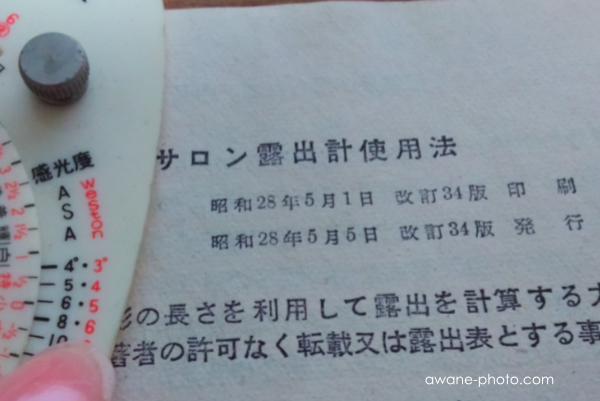 感光度
A
S
A
Weston
4°・3°
5・4
6・5
8・6
10
サロン露出計使用法
昭和28年5月1日 改訂34版 印刷
昭和28年5月5日 改訂34版 発行
の長さを利用して露出を計算する
著者の許可なく転載又は露出表とする事
awane-photo.com